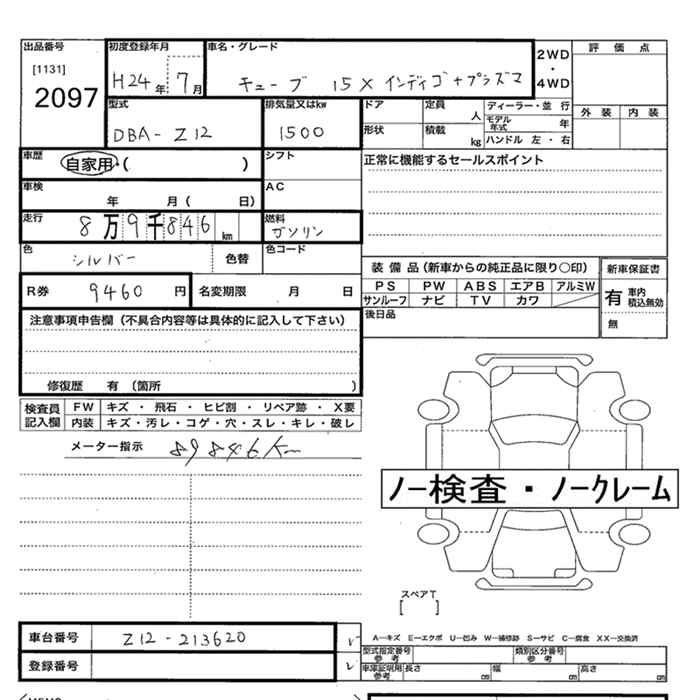 出品番号
[1131]
2097
初度登録年月
H24年 7月
車名・グレード
キューブ 15X インディゴ+プラズマ
2WD
・
4WD
評価点
外装 内装
型式
DBA-Z12
排気量又はkw
1500
ドア
形状
定員 人
積載 kg
ディーラー・並行
モデル年式 年
ハンドル 左・右
車歴
自家用・( )
シフト
正常に機能するセールスポイント
車検
年 月( 日)
AC
走行
8万9千846km
燃料
ガソリン
色
シルバー
色替
色コード
R券 9460円
名変期限 月 日
装備品(新車からの純正品に限り○印)
PS PW ABS エアB アルミW
サンルーフ ナビ TV カワ
後日品
新車保証書
有 車内積込無効
無
注意事項申告欄(不具合内容等は具体的に記入して下さい)
修復歴 有(箇所 )
検査員記入欄
FW キズ・飛石・ヒビ割・リペア跡・X要
内装 キズ・汚レ・コゲ・穴・スレ・キレ・破レ
メーター指示 89846Km
ノー検査・ノークレーム
スペアT
[ ]
車台番号 Z12-213620
登録番号
A―キズ E―エクボ U―凹み W―補修跡 S―サビ C―腐食 XX―交換済
型式指定番号
参考
類別区分番号
参考
車庫証明用
参考
長さ cm 幅 cm 高さ cm
MEMO